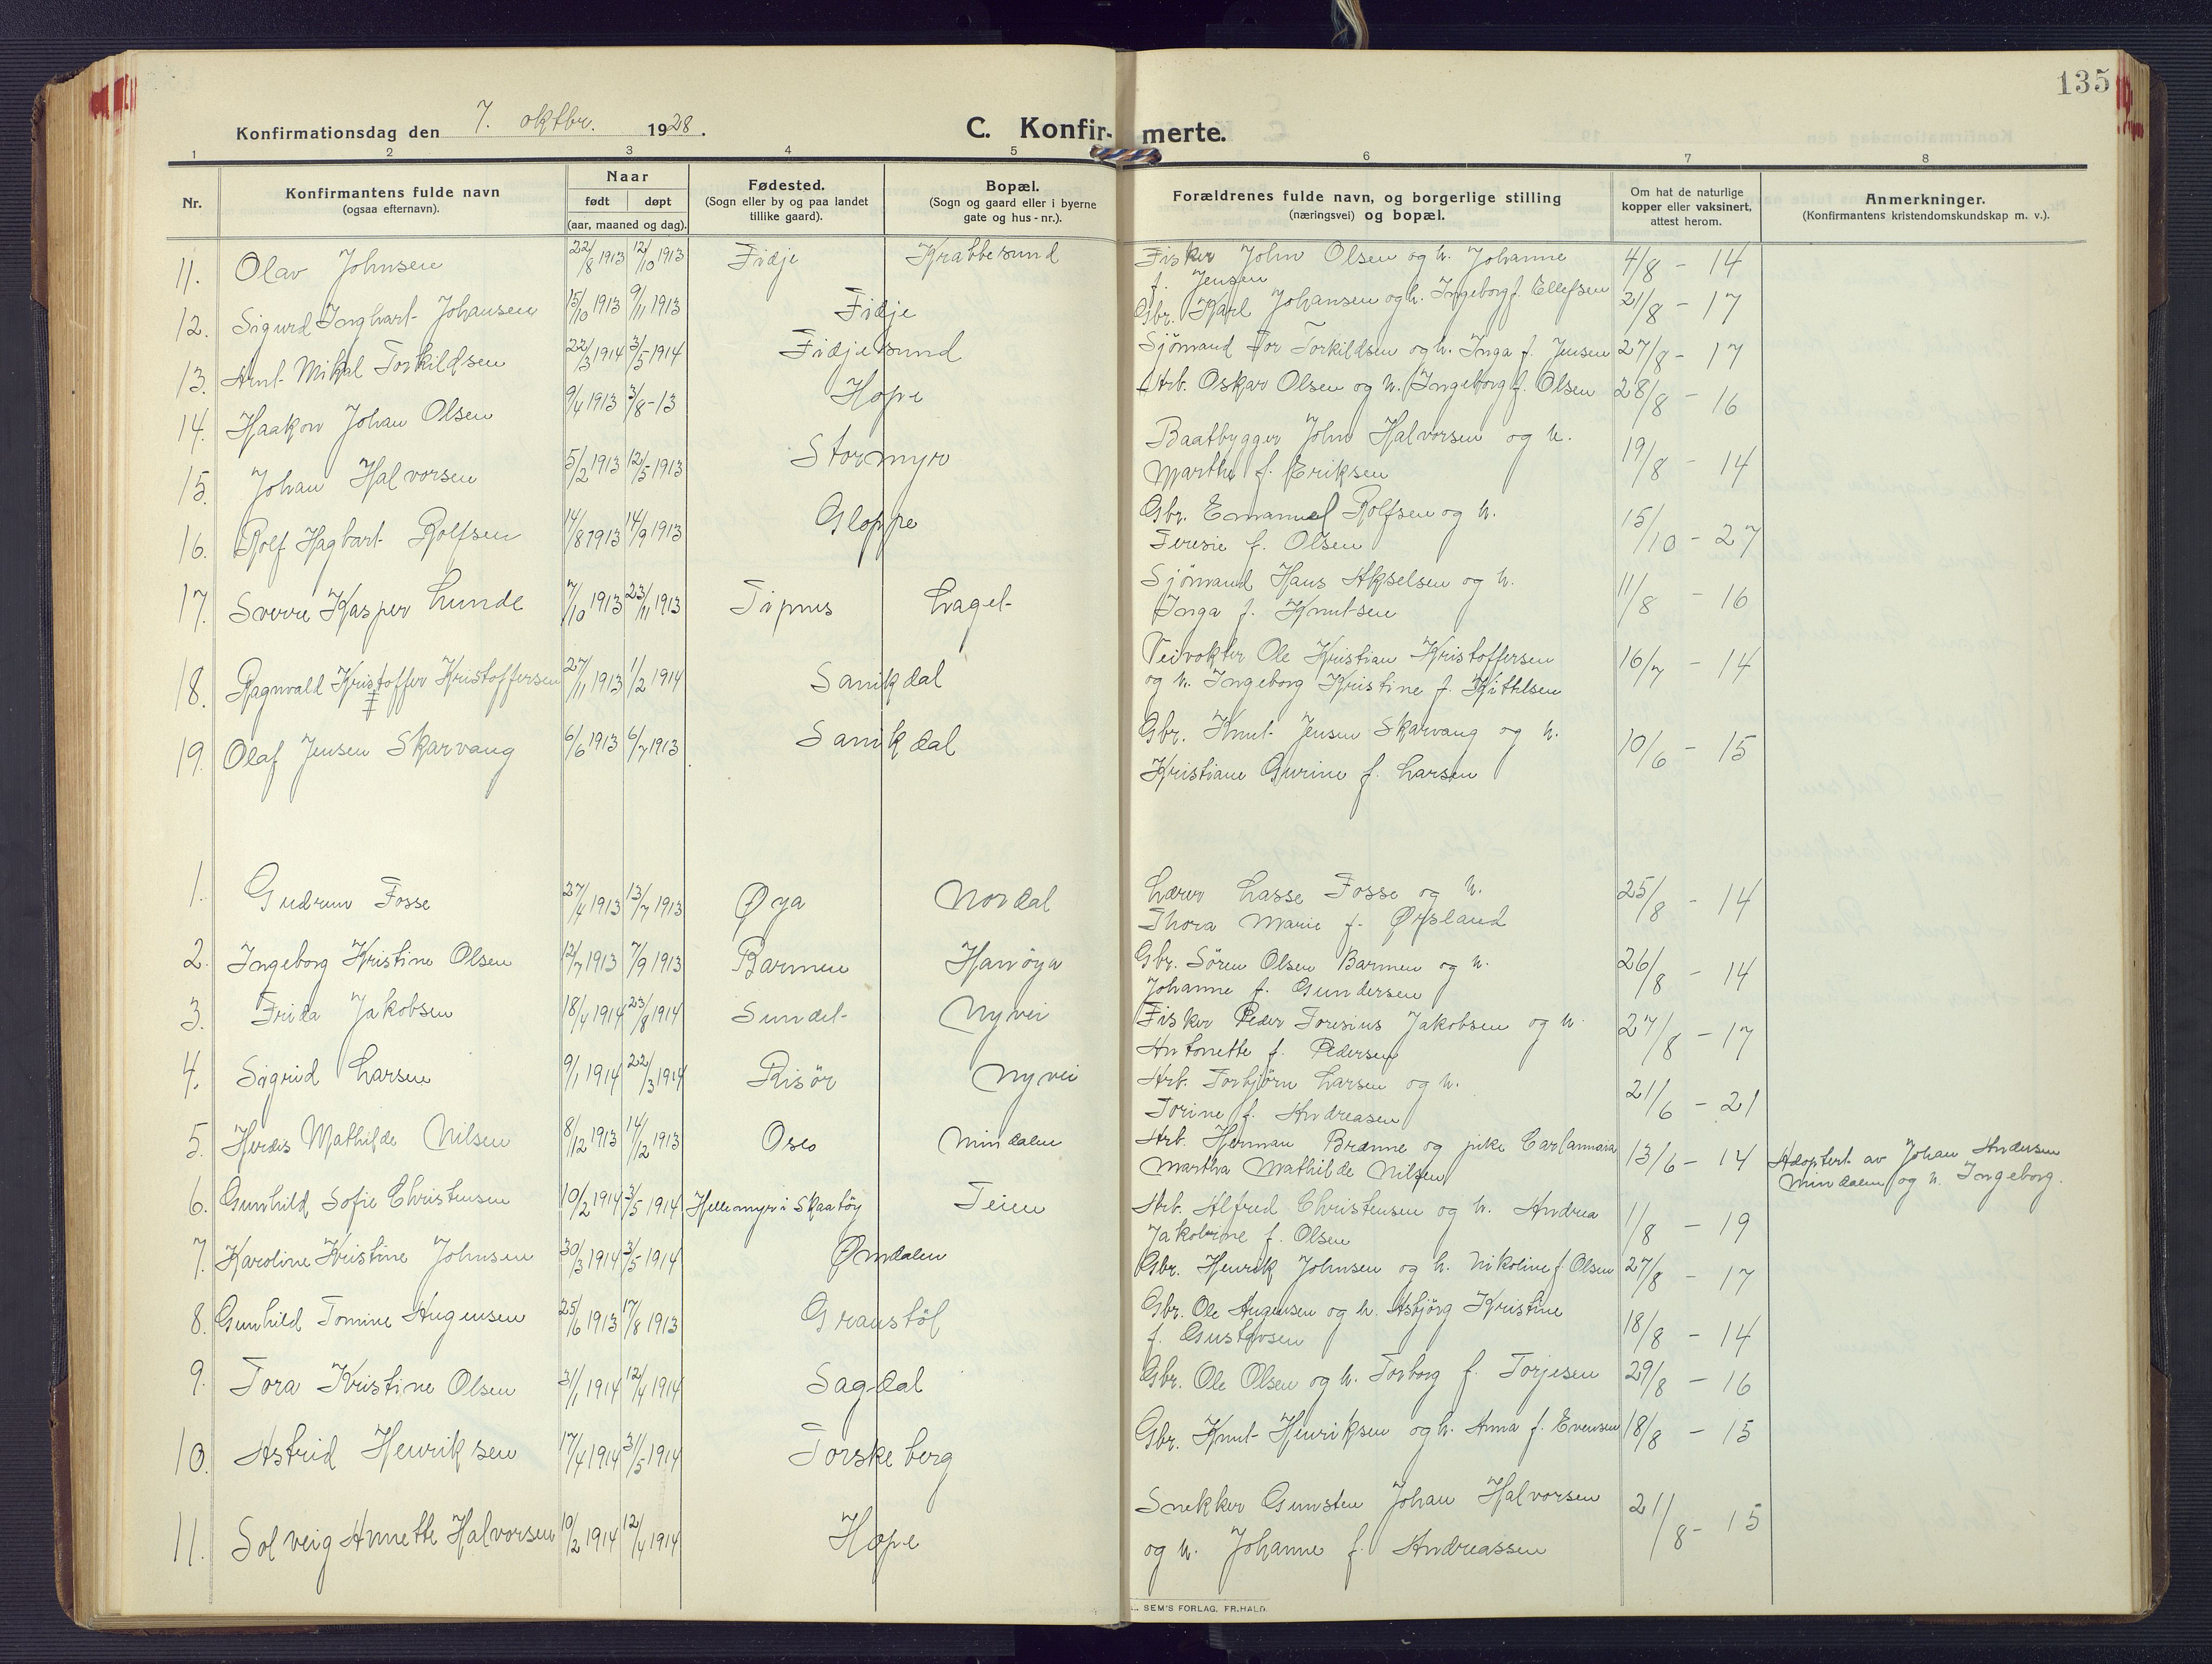 135
Konfirmationsdag den 7. oktbr. 1928.
C. Konfirmerte.
1 2 3 4 5 6 7 8
Nr.
Konfirmantens fulde navn
(ogsaa efternavn).
Naar
født døpt
(aar, maaned og dag).
Fødested.
(Sogn eller by og paa landet
tillike gaard).
Bopæl.
(Sogn og gaard eller i byerne
gate og hus-nr.).
Forældrenes fulde navn, og borgerlige stilling
(næringsvei) og bopæl.
Om hat de naturlige
kopper eller vaksinert,
attest herom.
Anmerkninger.
(Konfirmantens kristendomskundskap m. v.).
11. Olav Johnsen 22/8 1913 12/10 1913 Fidje Krabbesund Fisker John Olsen og h. Johanne 4/8 - 14
f. Jensen
12. Sigurd Inghart Johansen 15/10 1913 9/11 1913 Fidje Gbr. Karl Johansen og h. Ingeborg f. Ellefsen 21/8 - 17
13. Arnt Mikal Torkildsen 22/3 1914 3/5 1914 Fidjesund Sjömand Tor Torkildsen og h. Inga f. Jensen 27/8 - 17
14. Haakon Johan Olsen 9/4 1913 3/8-13 Hope Arb. Oskar Olsen og h. Ingeborg f. Olsen 28/8 - 16
15. Johan Halvorsen 5/2 1913 12/5 1913 Stormyr Baatbygger John Halvorsen og h. 19/8 - 14
Marthe f. Eriksen
16. Rolf Hagbart Rolfsen 14/8 1913 14/9 1913 Gloppe Gbr. Emanuel Rolfsen og h. 15/10 - 27
Teresie f. Olsen
17. Sverre Kasper Lunde 7/10 1913 23/11 1913 Laget Sjömand Hans Akselsen og h. 11/8 - 16
Inga f. Knutsen
18. Ragnvald Kristoffer Kristoffersen 27/11 1913 1/2 1914 Sanikdal Veivokter Ole Kristian Kristoffersen 16/7 - 14
og h. Ingeborg Kristine f. Kittelsen
19. Olaf Jensen Skarvang 6/6 1913 6/7 1913 Sanikdal Gbr. Knut Jensen Skarvang og h. 10/6 - 15
Kristiane Gurine f. Larsen
1. Gudrun Fosse 27/4 1913 13/7 1913 Øya Nordal Lærer Lasse Fosse og h. 25/8 - 14
Thora Marie f. Ørsland
2. Ingeborg Kristine Olsen 12/7 1913 7/9 1913 Barmen Havöya Gbr. Sören Olsen Barmen og h. 26/8 - 14
Johanne f. Gundersen
3. Frida Jakobsen 18/4 1914 23/8 1914 Sundet Nyvei Fisker Peder Toresius Jakobsen og h. 27/8 - 17
Antonette f. Pedersen
4. Sigrid Larsen 9/1 1914 22/3 1914 Risör Nyvei Arb. Torbjörn Larsen og h. 21/6 - 21
Torine f. Andreasen
5. Herdis Mathilde Nilsen 8/12 1913 14/12 1913 Oslo Mindalen Arb. Herman Brænne og pike Carlannaia 13/6 - 14 Adoptert av Johan Andersen
Martha Mathilde Nilsen Mindalen og h. Ingeborg.
6. Gunhild Sofie Christensen 10/2 1914 3/5 1914 Hellemyr i Skaatöy Teien Arb. Alfred Christensen og h. Andrea 1/8 - 19
Jakobine f. Olsen
7. Karoline Kristine Johnsen 30/3 1914 3/5 1914 Ømdalen Gbr. Henrik Johnsen og h. Nikoline f. Olsen 27/8 - 17
8. Gunhild Tomine Augensen 25/6 1913 17/8 1913 Granstöl Gbr. Ole Augensen og h. Asbjörg Kristine 18/8 - 14
f. Gustavsen
9. Tora Kristine Olsen 31/1 1914 12/4 1914 Sagdal Gbr. Ole Olsen og h. Torborg f. Torjesen 29/8 - 16
10. Astrid Henriksen 17/4 1914 31/5 1914 Torskeberg Gbr. Knut Henriksen og h. Anna f. Evensen 18/8 - 15
11. Solveig Annette Halvorsen 10/2 1914 12/4 1914 Hope Snekker Gunsten Johan Halvorsen 21/8 - 15
og h. Johanne f. Andreassen
SEM'S FORLAG, FR.HALD.